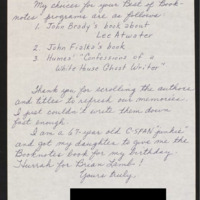 My choices for your Best of Book-
notes' programs are as follows:
1. John Brady's book about
Lee Atwater
2. John Fialka's book
3. Humes' "Confessions of a
White House Ghost Writer"
Thank you for scrolling the authors
and titles to refresh our memories.
I just couldn't write them down
fast enough.
I am a 67-year old C-SPAN "junkie"
and got my daughter to give me the
Booknotes book for my birthday.
Hurrah for Brian Lamb!
Yours truly,